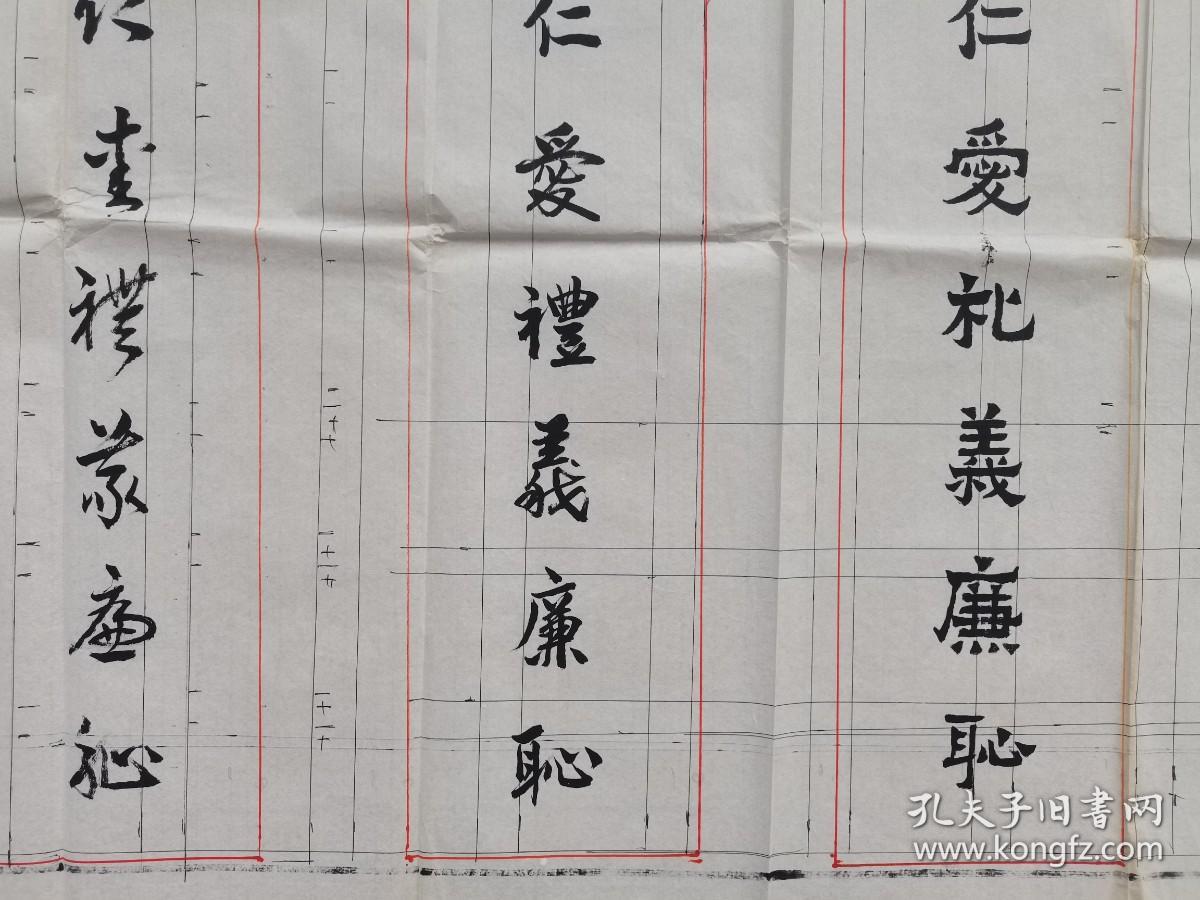 仁愛礼義廉恥
仁愛禮義廉恥
仁愛禮義廉恥
孔夫子旧書网
www.kongfz.com